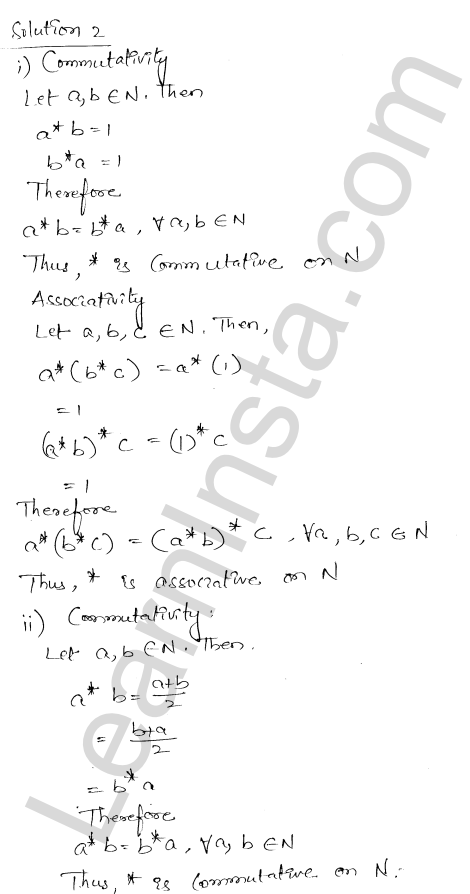 Solution 2
i) Commutativity
Let a, b ∈ N. Then
a * b = 1
b * a = 1
Therefore
a * b = b * a, ∀ a, b ∈ N
Thus, * is Commutative on N
Associativity
Let a, b, c ∈ N. Then,
a * (b * c) = a * (1)
= 1
(a * b) * c = (1) * c
= 1
Therefore
a * (b * c) = (a * b) * c, ∀ a, b, c ∈ N
Thus, * is associative on N
ii) Commutativity:
Let a, b ∈ N. Then.
a * b = a+b/2
= b+a/2
= b * a
Therefore
a * b = b * a, ∀ a, b ∈ N
Thus, * is commutative on N.
LearnInsta.com